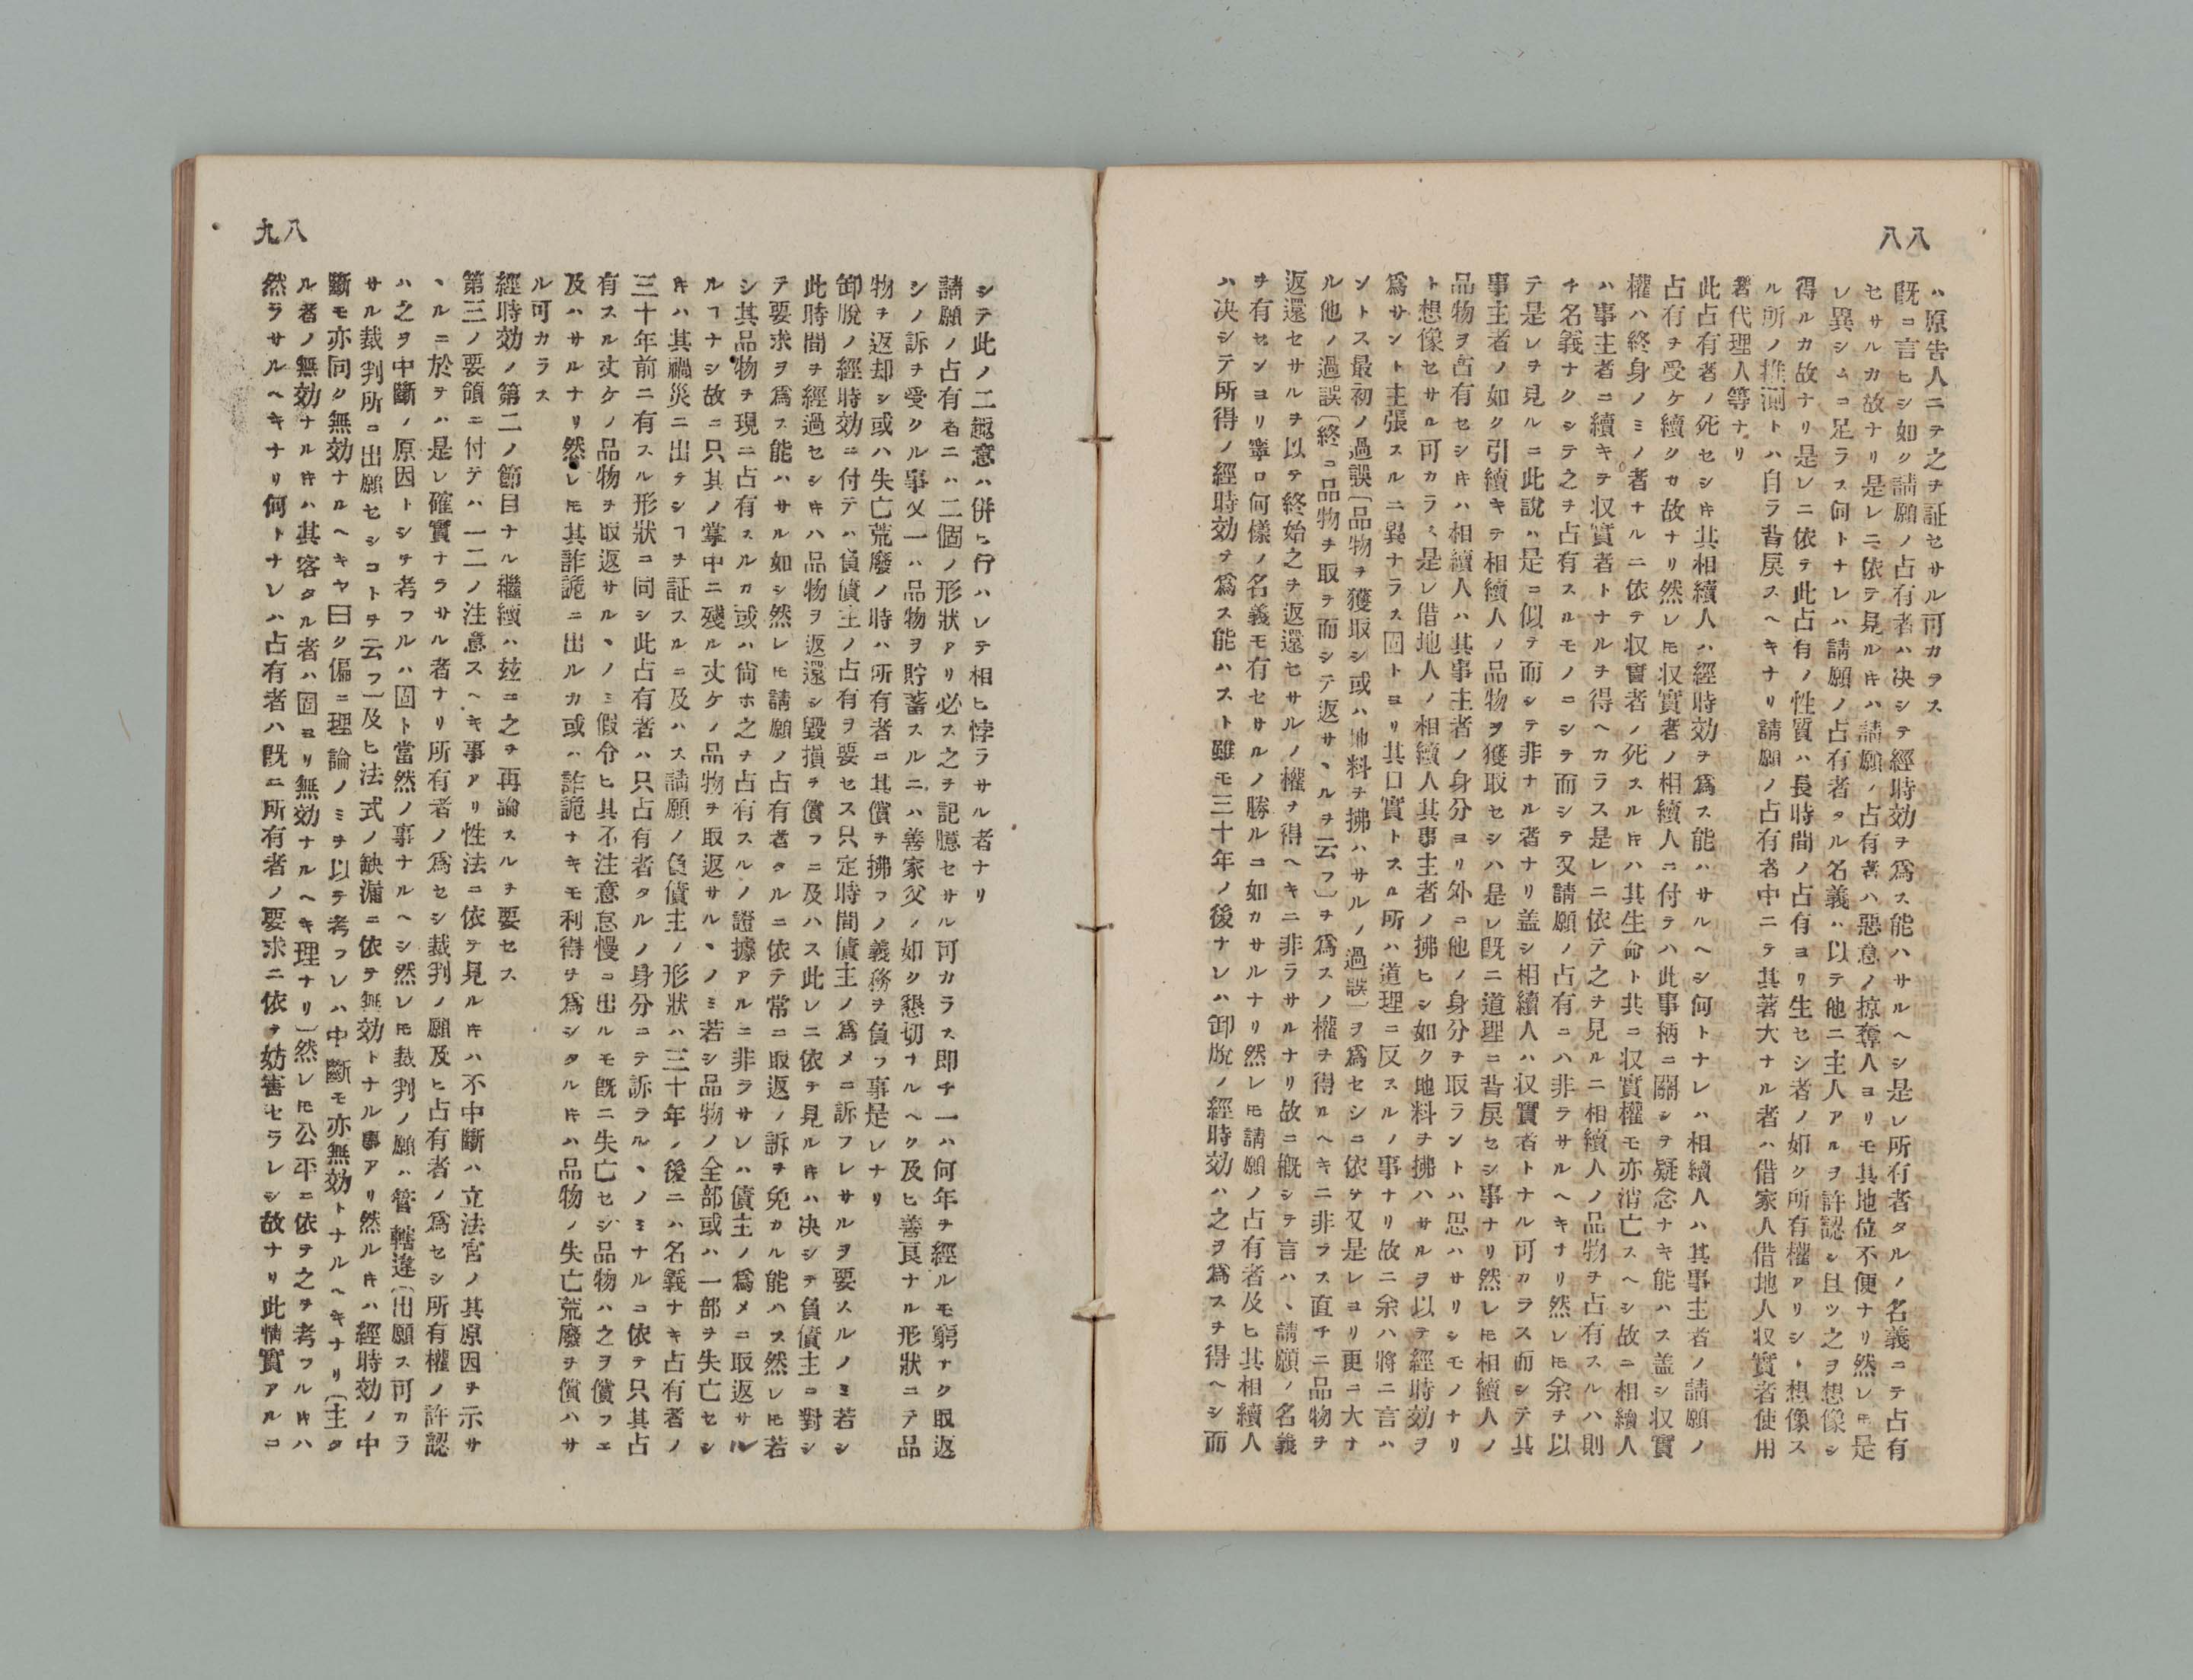 八八
ハ原告人ニテ之ヲ証セサル可カラス
既ニ言ヒシ如ク請願ノ占有者ハ决シテ經時効ヲ爲ス能ハサルヘシ是レ所有者タルノ名義ニテ占有
セサルカ故ナリ是レニ依テ見ルキハ請願ノ占有者ハ惡意ノ掠奪人ヨリモ其地位不便ナリ然レ𪜈是
レ異シムニ足ラス何トナレハ請願ノ占有者タル名義ハ以テ他ニ主人アルヲ許認シ且ツ之ヲ想像シ
得ルカ故ナリ是レニ依テ此占有ノ性質ハ長時間ノ占有ヨリ生セシ者ノ如ク所有權アリシト想像ス
ル所ノ推測トハ自ラ背戻スヘキナリ請願ノ占有者中ニテ其著大ナル者ハ借家人借地人収實者使用
者代理人等ナリ
此占有者ノ死セシ𪜈其相續人ハ經時効ヲ爲ス能ハサルヘシ何トナレハ相續人ハ其事主者ノ請願ノ
占有ヲ受ケ續クカ故ナリ然レ𪜈収實者ノ相續人ニ付テハ此事柄ニ關シテ疑念ナキ能ハス盖シ収實
權ハ終身ノミノ者ナルニ依テ収實者ノ死スルキハ其生命ト共ニ収實權モ亦消亡スヘシ故ニ相續人
ハ事主者ニ續キテ収實者トナルヲ得ヘカラス是レニ依テ之ヲ見ルニ相續人ノ品物ヲ占有スルハ則
チ名義ナクシテ之ヲ占有スルモノニシテ而シテ又請願ノ占有ニハ非ラサルヘキナリ然レ𪜈余ヲ以
テ是レヲ見ルニ此說ハ是ニ似テ而シテ非ナル者ナリ盖シ相續人ハ収實者トナル可カラス而シテ其
事主者ノ如ク引續キテ相續人ノ品物ヲ獲取セシハ是レ既ニ道理ニ背戻セシ事ナリ然レ𪜈相續人ノ
品物ヲ占有セシキハ相續人ハ其事主者ノ身分ヨリ外ニ他ノ身分ヲ取ラントハ思ハサリシモノナリ
ト想像セサル可カラス是レ借地人ノ相續人其事主者ノ拂ヒシ如ク地料ヲ拂ハサルヲ以テ經時効ヲ
爲サント主張スルニ異ナラス固トヨリ其口實トスル所ハ道理ニ反スルノ事ナリ故ニ余ハ將ニ言ハ
ントス最初ノ過誤〔品物ヲ獲取シ或ハ地料ヲ拂ハサルノ過誤〕ヲ爲セシニ依テ又是レヨリ更ニ大ナ
ル他ノ過誤〔終ニ品物ヲ取テ而シテ返サヽルヲ云フ〕ヲ爲スノ權ヲ得ルヘキニ非ラス直チニ品物ヲ
返還セサルヲ以テ終始之ヲ返還セサルノ權ヲ得ヘキニ非ラサルナリ故ニ槪シテ言ハヽ請願ノ名義
ヲ有センヨリ寧ロ何樣ノ名義モ有セサルノ勝ルニ如カサルナリ然レ𪜈請願ノ占有者及ヒ其相續人
ハ决シテ所得ノ經時効ヲ爲ス能ハスト雖モ三十年ノ後ナレハ卸脫ノ經時効ハ之ヲ爲スヲ得ヘシ而
八九
シテ此ノ二趣意ハ併ヒ行ハレテ相ヒ悖ラサル者ナリ
請願ノ占有者ニハ二個ノ形狀アリ必ス之ヲ記臆セサル可カラス即チ一ハ何年ヲ經ルモ窮ナク取返
シノ訴ヲ受クル事又一ハ品物ヲ貯蓄スルニハ善家父ノ如ク懇切ナルヘク及ヒ善良ナル形狀ニテ品
物ヲ返却シ或ハ失亡荒廢ノ時ハ所有者ニ其償ヲ拂フノ義務ヲ負フ事是レナリ
卸脫ノ經時効ニ付テハ負債主ノ占有ヲ要セス只定時間債主ノ爲メニ訴フレサルヲ要スルノミ若シ
此時間ヲ經過セシキハ品物ヲ返還シ毀損ヲ償フニ及ハス此レニ依テ見ルキハ决シテ負債主ニ對シ
テ要求ヲ爲ス能ハサル如シ然レ𪜈請願ノ占有者タルニ依テ常ニ取返ノ訴ヲ免カル能ハス然レ𪜈若
シ其品物ヲ現ニ占有スルカ或ハ尙ホ之ヲ占有スルノ證據アルニ非ラサレハ債主ノ爲メニ取返サル
ルヿナシ故ニ只其ノ掌中ニ殘ル丈ケノ品物ヲ取返サルヽノミ若シ品物ノ全部或ハ一部ヲ失亡セシ
キハ其禍災ニ出テシヿヲ証スルニ及ハス請願ノ負債主ノ形狀ハ三十年ノ後ニハ名義ナキ占有者ノ
三十年前ニ有スル形狀ニ同シ此占有者ハ只占有者タルノ身分ニテ訴ラルヽノミナルニ依テ只其占
有スル丈ケノ品物ヲ取返サルヽノミ假令ヒ其不注意怠慢ニ出ルモ既ニ失亡セシ品物ハ之ヲ償フニ
及ハサルナリ然レ𪜈其詐詭ニ出ルカ或ハ詐詭ナキモ利得ヲ爲シタルキハ品物ノ失亡荒廢ヲ償ハサ
ル可カラス
經時効ノ第二ノ節目ナル繼續ハ玆ニ之ヲ再論スルヲ要セス
第三ノ要領ニ付テハ一二ノ注意スヘキ事アリ性法ニ依テ見ルキハ不中斷ハ立法官ノ其原因ヲ示サ
ヽルニ於テハ是レ確實ナラサル者ナリ所有者ノ爲セシ裁判ノ願及ヒ占有者ノ爲セシ所有權ノ許認
ハ之ヲ中斷ノ原因トシテ考フルハ固ト當然ノ事ナルヘシ然レ𪜈裁判ノ願ハ管轄違〔出願ス可カラ
サル裁判所ニ出願セシコトヲ云フ〕及ヒ法式ノ缺漏ニ依テ無効トナル事アリ然ルキハ經時効ノ中
斷モ亦同ク無効ナルヘキヤ曰ク偏ニ理論ノミヲ以テ考フレハ中斷モ亦無効トナルヘキナリ〔主タ
ル者ノ無効ナルキハ其客タル者ハ固ヨリ無効ナルヘキ理ナリ〕然レ𪜈公平ニ依テ之ヲ考フルキハ
然ラサルヘキナリ何トナレハ占有者ハ既ニ所有者ノ要求ニ依テ妨害セラレシ故ナリ此情實アルコ